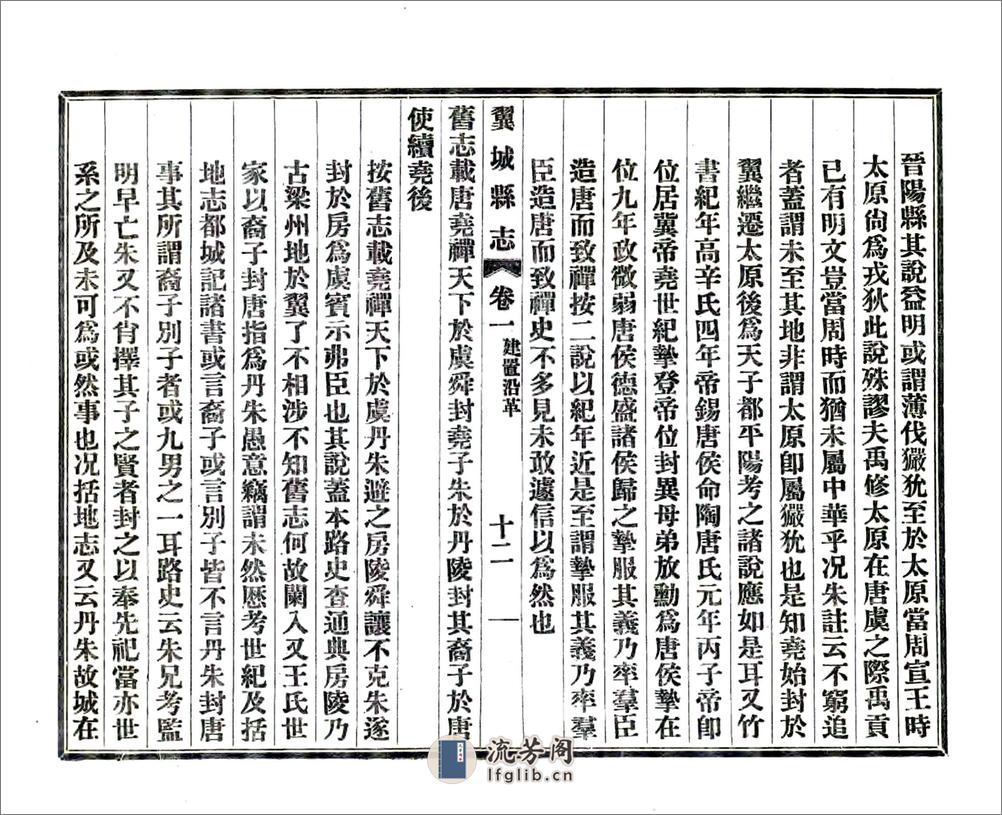 晉陽縣其說益明或謂薄伐玁狁至於太原當周宣王時
太原尙爲戎狄此說殊謬夫禹修太原在唐虞之際禹貢
已有明文豈當周時而猶未屬中華乎况朱註云不窮追
者蓋謂未至其地非謂太原卽屬玁狁也是知堯始封於
翼繼遷太原後爲天子都平陽考之諸說應如是耳又竹
書紀年高辛氏四年帝錫唐侯命陶唐氏元年丙子帝卽
位居冀帝堯世紀摯登帝位封異母弟放勳爲唐侯摯在
位九年政微弱唐侯德盛諸侯歸之摯服其義乃率羣臣
造唐而致禪按二說以紀年近是至謂摯服其義乃率羣
臣造唐而致禪史不多見未敢遽信以爲然也
翼城縣志 卷一 建置沿革 十二
舊志載唐堯禪天下於虞舜封堯子朱於丹陵封其裔子於唐
使續堯後
按舊志載堯禪天下於虞丹朱避之房陵舜讓不克朱遂
封於房爲虞賓示弗臣也其說蓋本路史查通典房陵乃
古梁州地於翼了不相涉不知舊志何故闌入又王氏世
家以裔子封唐指爲丹朱愚意竊謂未然歷考世紀及括
地志都城記諸書或言裔子或言別子皆不言丹朱封唐
事其所謂裔子別子者或九男之一耳路史云朱兄考監
明早亡朱又不肖擇其子之賢者封之以奉先祀當亦世
系之所及未可爲或然事也况括地志又云丹朱故城在
流芳阁
lfglib.cn